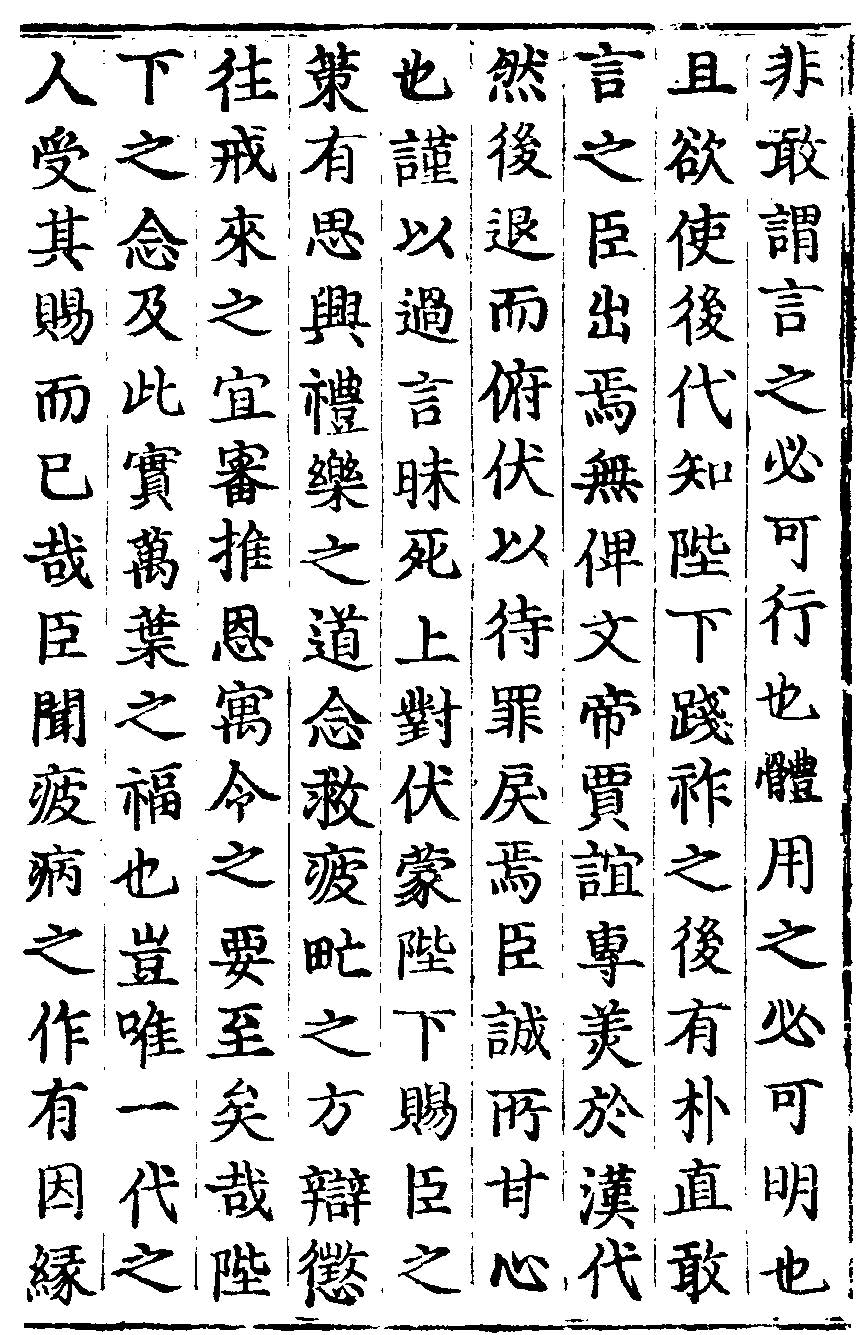 非敢謂言之必可行也體用之必可明也
且欲使後代知陛下踐祚之後有朴直敢
言之臣出焉無俾文帝賈誼專羙於漢代
然後退而俯伏以待罪戾焉臣誠所甘心
也謹以過言昧死上對伏蒙陛下賜臣之
策有思興禮樂之道念救疲甿之方辯懲
往戒來之宜審推恩寓令之要至矣哉陛
下之念及此實萬葉之福也豈唯一代之
人受其賜而已哉臣聞疲病之作有因緣